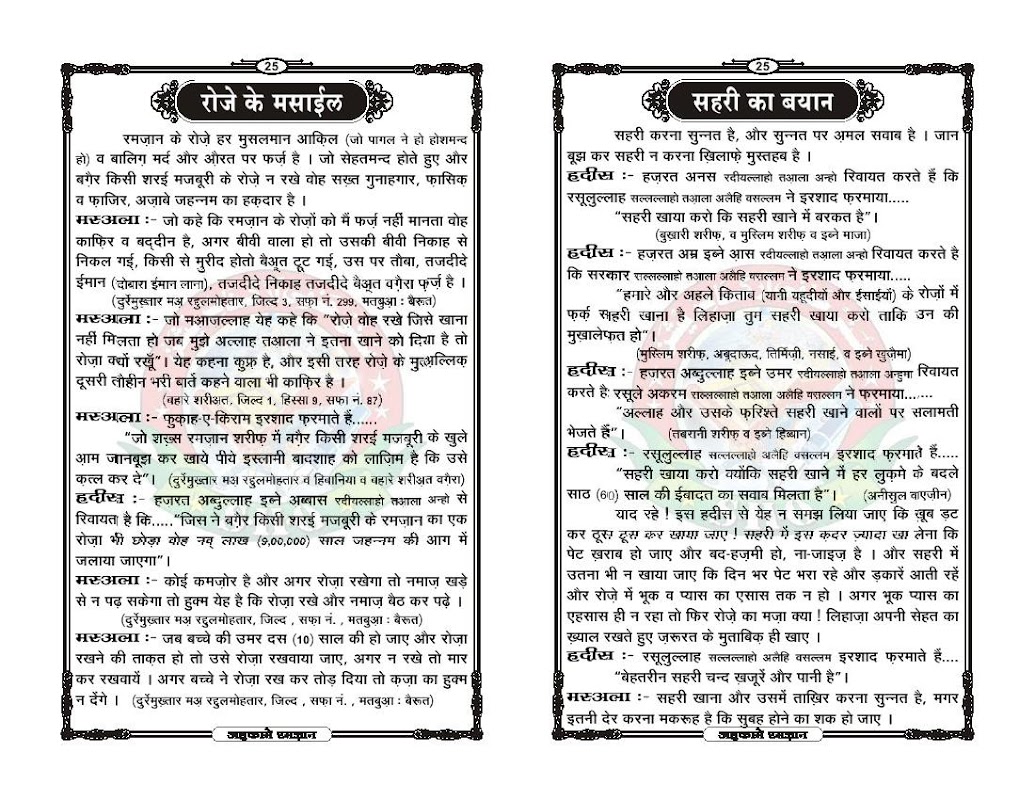 25
रोजे के मसाईल
रमज़ान के रोज़े हर मुसलमान आक़िल (जो पागल ने हो होशमन्द
हो) व बालिग़ मर्द और औरत पर फर्ज़ है । जो सेहतमन्द होते हुए और
बग़ैर किसी शरई मजबूरी के रोज़े न रखे वोह सख़्त गुनाहगार, फ़ासिक़
व फ़ाजिर, अज़ाबे जहन्नम का हक़दार है ।
मस्अला :- जो कहे कि रमज़ान के रोज़ों को मैं फर्ज़ नहीं मानता वोह
काफ़िर व बद्दीन है, अगर बीवी वाला हो तो उसकी बीवी निकाह से
निकल गई, किसी से मुरीद होतो बैअ़त टूट गई, उस पर तौबा, तजदीदे
ईमान (दोबारा ईमान लाना), तजदीदे निकाह तजदीदे बैअ़त वग़ैरा फर्ज़ है ।
(दुर्रेमुख़्तार मअ़ रद्दुलमोहतार, जिल्द 3, सफ़ा नं. 299, मतबुआ : बैरूत)
मस्अला :- जो मआजल्लाह येह कहे कि "रोज़े वोह रखे जिसे खाना
नहीं मिलता हो जब मुझे अल्लाह तआला ने इतना खाने को दिया है तो
रोज़ा क्यों रखूँ"। येह कहना कुफ्र है, और इसी तरह रोज़े के मुतअल्लिक़
दूसरी तौहीन भरी बातें कहने वाला भी काफ़िर है ।
(बहारे शरीअत, जिल्द 1, हिस्सा 9, सफ़ा नं. 87)
मस्अला :- फुक़हा-ए-किराम इरशाद फ़रमाते हैं......
"जो शख़्स रमज़ान शरीफ़ में बग़ैर किसी शरई मजबूरी के खुले
आ़म जानबूझ कर खाये पीये इस्लामी बादशाह को लाज़िम है कि उसे
क़त्ल कर दे"। (दुर्रेमुख़्तार मअ़ रद्दुलमोहतार व बहारे शरीअ़त वगैरा)
हदीस :- हज़रत अब्दुल्लाह इब्ने अब्बास रदीयल्लाहो तआला अन्हो से
रिवायत है कि....."जिस ने बग़ैर किसी शरई मजबूरी के रमज़ान का एक
रोज़ा भी छोड़ा वोह नव् लाख (9,00,000) साल जहन्नम की आग में
जलाया जाएगा"।
मस्अला :- कोई कमज़ोर है और अगर रोज़ा रखेगा तो नमाज़ खड़े
से न पढ़ सकेगा तो हुक्म येह है कि रोज़ा रखे और नमाज़ बैठ कर पढ़े ।
(दुर्रेमुख़्तार मअ़ रद्दुलमोहतार, जिल्द , सफ़ा नं. , मतबुआ : बैरूत)
मस्अला :- जब बच्चे की उमर दस (10) साल की हो जाए और रोज़ा
रखने की ताक़त हो तो उसे रोज़ा रखवाया जाए, अगर न रखे तो मार
कर रखवायें । अगर बच्चे ने रोज़ा रख कर तोड़ दिया तो क़ज़ा का हुक्म
न देंगे । (दुर्रेमुख़्तार मअ़ रद्दुलमोहतार, जिल्द , सफ़ा नं. , मतबुआ : बैरूत)
अहकामे रमज़ान
25
सहरी का बयान
सहरी करना सुन्नत है, और सुन्नत पर अ़मल सवाब है । जान
बूझ कर सहरी न करना ख़िलाफ़े मुस्तहब है ।
हदीस :- हज़रत अनस रदीयल्लाहो तआला अन्हो रिवायत करते हैं कि
रसूलुल्लाह सल्लल्लाहो तआला अलैहि वसल्लम ने इरशाद फ़रमाया.....
"सहरी खाया करो कि सहरी खाने में बरकत है"।
(बुख़ारी शरीफ़, व मुस्लिम शरीफ़ व इब्ने माजा)
हदीस :- हज़रत अम्र इब्ने आ़स रदीयल्लाहो तआला अन्हो रिवायत करते है
कि सरकार सल्लल्लाहो तआला अलैहि वसल्लम ने इरशाद फ़रमाया.....
"हमारे और अहले किताब (यानी यहूदीयों और ईसाईयों) के रोज़ों में
फ़र्क़ सहरी खाना है लिहाज़ा तुम सहरी खाया करो ताकि उन की
मुख़ालेफ़त हो"।
(मुस्लिम शरीफ़, अबूदाऊद, तिर्मिज़ी, नसाई, व इब्ने खुज़ैमा)
हदीस :- हज़रत अब्दुल्लाह इब्ने उमर रदीयल्लाहो तआला अन्हुमा रिवायत
करते है: रसूले अकरम सल्लल्लाहो तआला अलैहि वसल्लम ने फरमाया.......
"अल्लाह और उसके फ़रिश्ते सहरी खाने वालों पर सलामती
भेजते हैं"। (तबरानी शरीफ़ व इब्ने हिब्बान)
हदीस :- रसूलुल्लाह सल्लल्लाहो अलैहि वसल्लम इरशाद फ़रमाते हैं.....
"सहरी खाया करो क्योंकि सहरी खाने में हर लुक़मे के बदले
साठ (60) साल की ईबादत का सवाब मिलता है"। (अनीसुल वाएजीन)
याद रहे ! इस हदीस से येह न समझ लिया जाए कि ख़ूब डट
कर ठूस ठूस कर खाया जाए ! सहरी में इस क़दर ज़्यादा खा लेना कि
पेट ख़राब हो जाए और बद-हज़मी हो, ना-जाइज़ है । और सहरी में
उतना भी न खाया जाए कि दिन भर पेट भरा रहे और डकारें आती रहें
और रोज़े में भूक व प्यास का एसास तक न हो । अगर भूक प्यास का
एहसास ही न रहा तो फिर रोज़े का मज़ा क्या ! लिहाज़ा अपनी सेहत का
ख़्याल रखते हुए ज़रूरत के मुताबिक़ ही खाए ।
हदीस :- रसूलुल्लाह सल्लल्लाहो अलैहि वसल्लम इरशाद फ़रमाते हैं....
"बेहतरीन सहरी चन्द खजूरें और पानी है"।
मस्अला :- सहरी खाना और उसमें ताख़िर करना सुन्नत है, मगर
इतनी देर करना मकरूह है कि सुबह होने का शक हो जाए ।
अहकामे रमज़ान